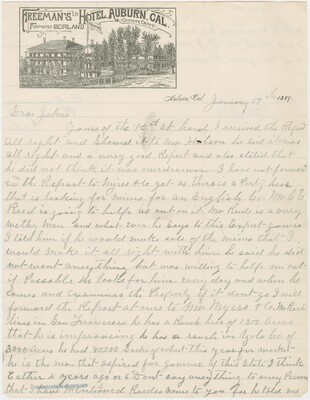 FREEMAN'S HOTEL, AUBURN, CAL.
FORMERLY BORLAND
Auburn, Cal January 17th 1889
Dear Jakie
Yours of the 15th at hand I received the Report
all right and Showed it to Mr he said it was
all right and a very good Report and also stated that
he did not think it was overdrawn I have not forward
the Report to Myres & Co yet as there is a Party here
that is looking for mines for an English Co Mr C E
Reed is going to help us out on it Mr is a very
man and what ever he Says to this Expert goes
I told him if he would make sale of the mines that I
would make it all right with him he said he did
not want anything but was willing to help me out
if Possable He looks for him every day and when he
comes and examines the Property if it dont go I will
forward the Report at once to Mr Myers & Co
lives in San Francisco he has a Ranch here of 1200 acres
that he is improveing he has a ranch in Yolo Co of
3000 acres he had Sacks of wheat this year for market
he is the man that aspired for governor of this State I think
Eather 4 years ago or 6 Dont Say anything to any Person
that I have Mentioned come to you for he told me